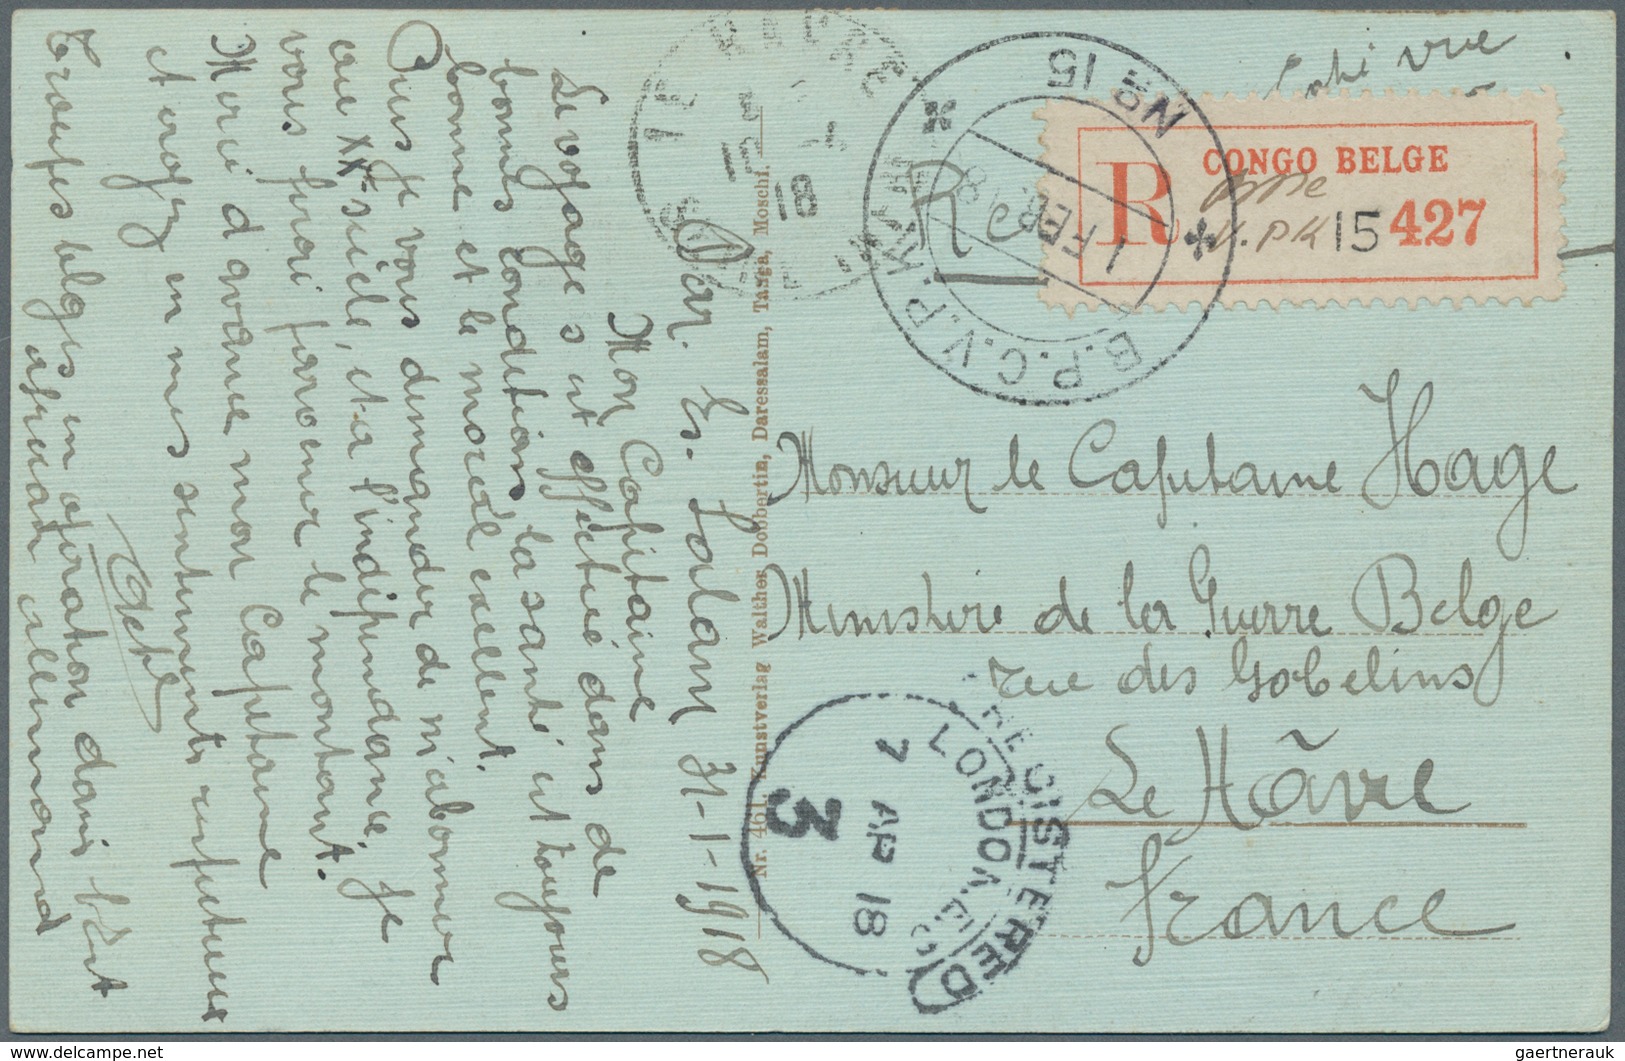 Dar. Es. Salam 31-1-1918
Mon Capitaine
Le voyage s'est effectué dans de
bonnes conditions, la santé est toujours
bonne et le moral excellent.
Puis-je vous demander de m'abonner
au XXe siècle, et a l'indépendance. Je
vous ferai parvenir le montant.
Merci d'avance mon Capitaine
et croyez en mes sentiments respectueux
Troupes belges en opération dans l'Est
africain allemand
Nr. 461 Kunstverlag Walther Dobbertin, Daressalam, Tanga, Moschi.
côté vue
R
CONGO BELGE
V.PK 15 427
B.P.C.V.P.K.
No 15
1 FEB
18
Monsieur le Capitaine Hage
Ministère de la Guerre Belge
rue des Gobelins
Le Hâvre
France
REGISTERED
LONDON
7 AP 18
3
gaertnerauk